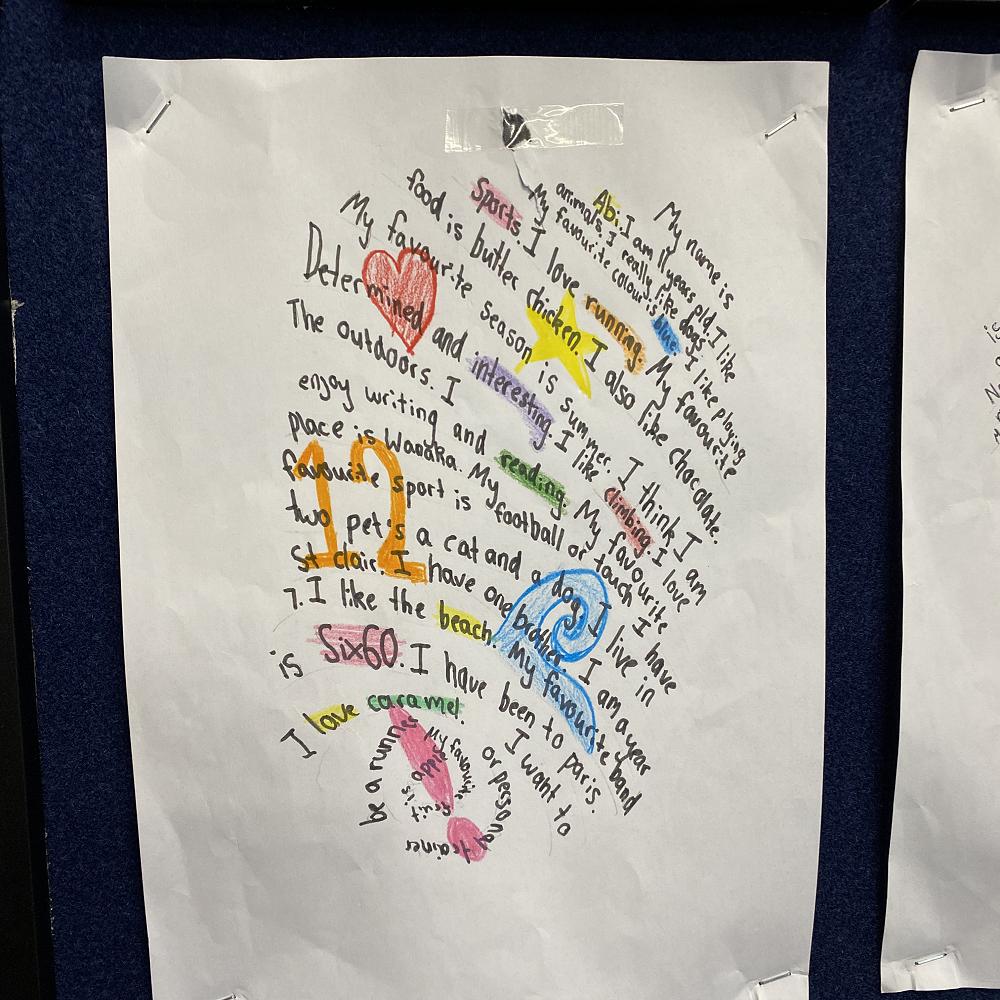 My name is
Abi. I am 11 years old. I like
animals. I really like dogs. I like playing
Sports. I love running.
My favourite colour is blue. My favourite
food is butter chicken. I also like chocolate.
My favourite season is summer. I think I am
Determined and interesting. I like climbing. I love
The outdoors. I
enjoy writing and reading. My favourite
place is Wanaka. My
favourite sport is football or touch I have
two pet's a cat and a dog. I live in
St clair. I have one brother. I am a year
7. I like the beach. My favourite band
is Six60. I have been to paris.
I love caramel. I want to
be a runner or personal trainer
My favourite fruit is apple
12